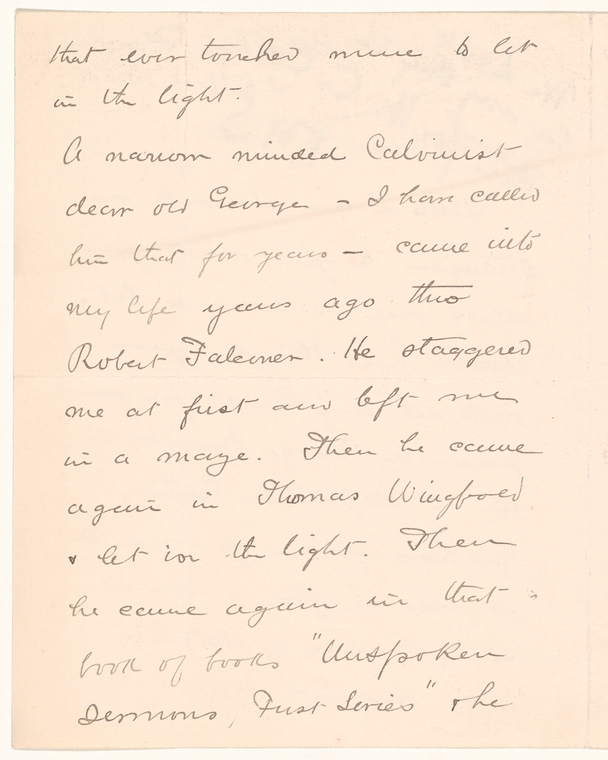 that ever touched mine to let
in the light.
A narrow minded Calvinist
dear old George – I have called
him that for years – came into
my life years ago thro
Robert Falconer. He staggered
me at first and left me
in a maze. Then he came
again in Thomas Wingfold
& let in the light. Then
he came again in that
book of books "Unspoken
Sermons, First Series" & he